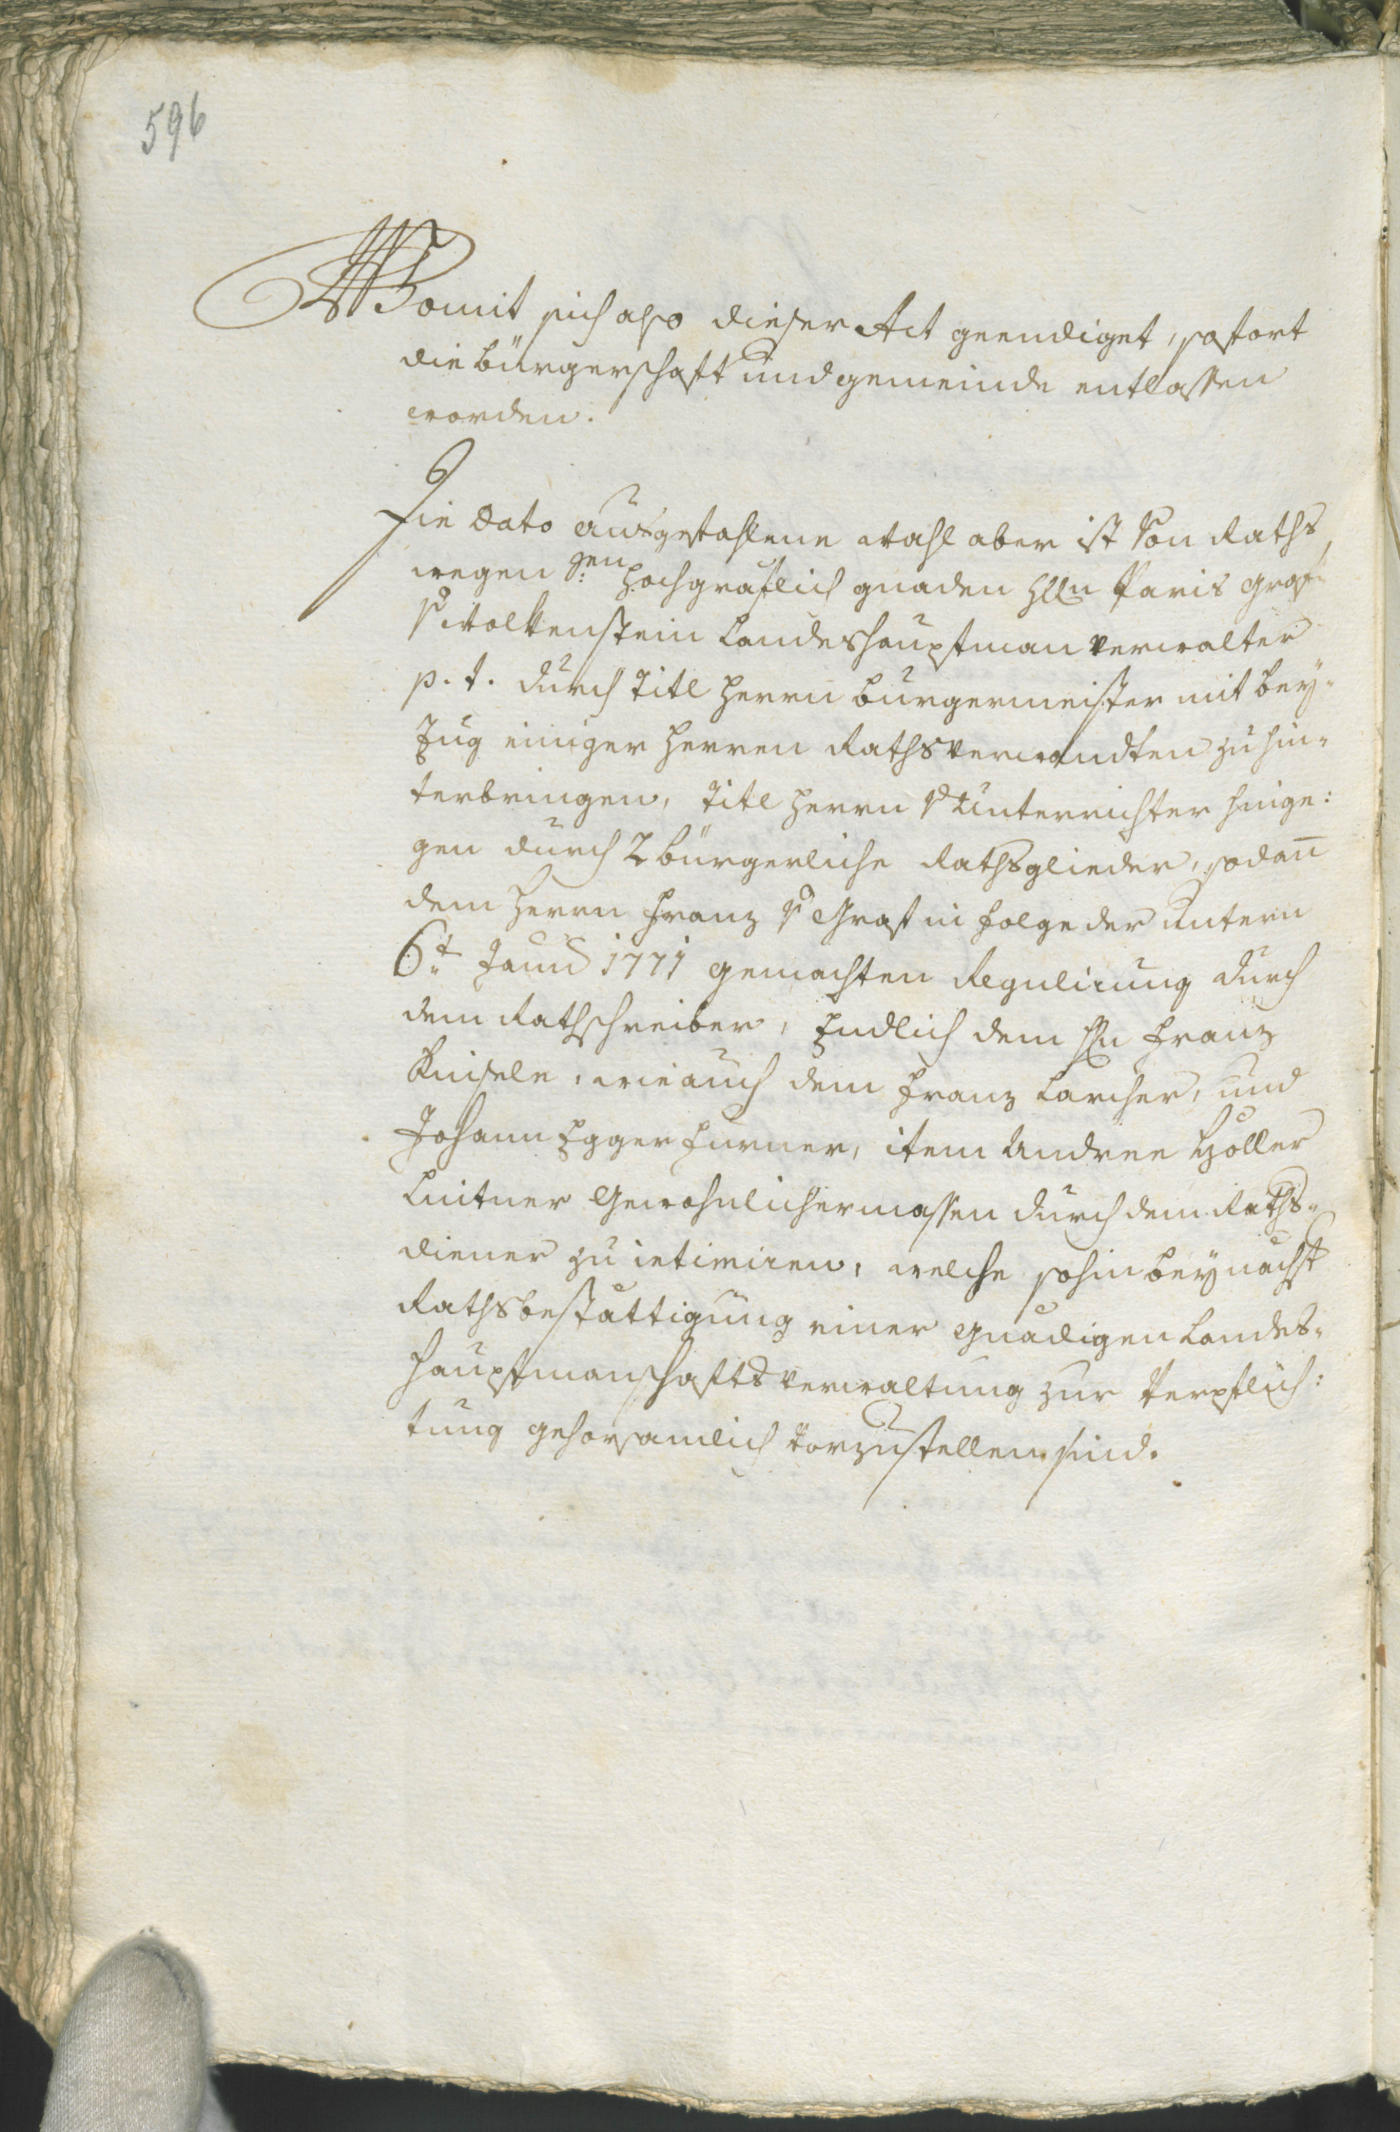 596
Womit sich also dieser Act geendiget, sofort
die bürgerschaft und gemeinde entlassen
worden.
Die Dato ausgefahlene wahl aber ist von Raths
wegen Sr: hochgräflich gnaden Hln Paris graf
v wolkenstein Landeshauptman verwalter
p. t. durch Titl herrn burgermeister mit bey„
zug einiger herren Rathsverwandten zu hin„
terbringen, Titl herrn v Unterrichter hinge:
gen durch 2 bürgerliche Rathsglieder, sodan̄
dem herrn Franz v Graf in folge der untern
6t 1771 gemachten Regulirung durch
dem Rathschreiber, Endlich dem Hn Franz
Kniseln, wie auch dem Franz Larcher, und
Johann Egger Furner, item Andree Holler
Leitner Gewohnlichermassen durch dem Raths„
diener zu intimiren, welche sohin bey nächst
Rathsbestättigung einer gnädigen Landes„
hauptmanschafts verwaltung zur Verpflich:
tung gehorsamlich vorzustellen sind.